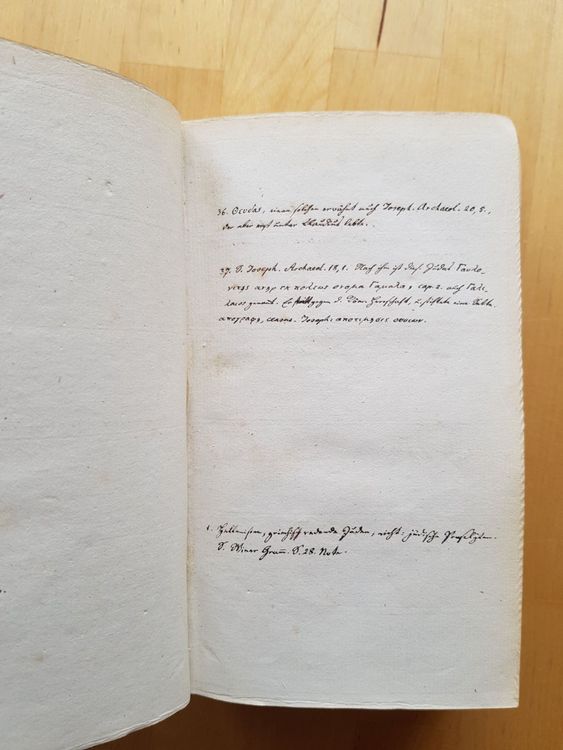 36. Θευδας, einen solchen erwähnt auch Joseph. Archaeol. 20, 5.,
der aber erst unter Claudius lebte.
37. S. Joseph. Archaeol. 18, 1. Nach ihm ist dies. Judas Γαυλο-
νιτης ανηρ εκ πολεως ονομα Γαμαλα, cap. 2. auch Γαλι-
λαιος genannt. Er gegen d. Röm. Herrschaft, u. stiftete eine Sekte.
απογραφη, census. Josephi αποτιμησις ουσιων.
1. Hellenisten, griechisch redende Juden, nicht: jüdische Proselyten.
S. Winer Gram. S. 28. Note.